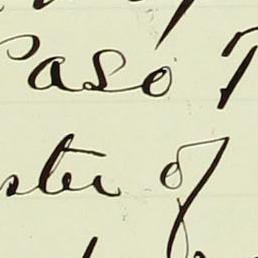 Paso T
ster of